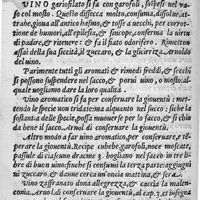 VINO gariofilato si fa con garofoli, sospesi nel va-
so col mosto. Questo disecca molto, consuma, dissolue, at-
trahe, gioua all'antico hasino, & tosse a uecchi, per corret-
tione de humori, all'epilesia, & sincope, conferma la uirtù
di padire, & ritenere: & fa il fiato odorifero. Rimetton
assai della sua siccità, il zuccaro, & la gliciriza, Arnoldo
del uino.
Parimente tutti gli aromati & rimedi freddi, & secchi
si possono suspendere nel sacco, & porui uino, o mosto, al
quale uogliamo dara loro qualità.
Vino aromatico si fa per conseruare la giouentù: met-
tendo le specie non tridate: ma alquanto nel sacco: siche la
sostantia delle specie, possa muouerse per lo sacco, & si chia-
risca, & coli. Arnol. di conseruare la giouentù.
Altro modo a far uino aromatico, per conseruare, & re-
perare la giouentù. Recipe cubebe, garofoli, noce moscate,
passule di ciascuno dracme 3. bogliano nel sacco in tre lib-
bre di buon uino, finche si consumi la terza parte: aggiugni-
ui zuccaro, & danne cerca un'oncia mattina, & sera.
Vino zaffranato dona allegrezza, & caccia la malen-
conia. Arnol. di conseruare la giouentù, al cap. 3. et insegna